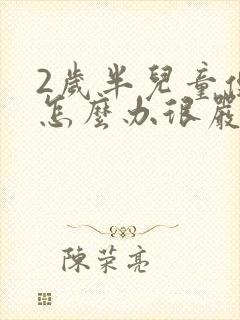 2歲半兒童
怎麼办很嚴
陳荣亮